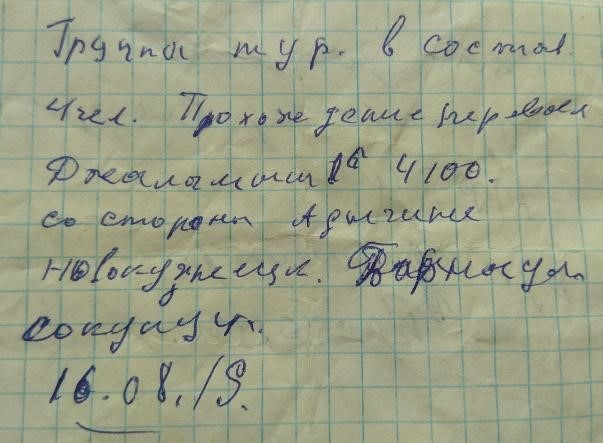 Группа тур. в состав
4 чел. Прохождение перевал
1а 4100.
со стороны Адыгине
Новокузнецк. Барнаул
16.08.15.